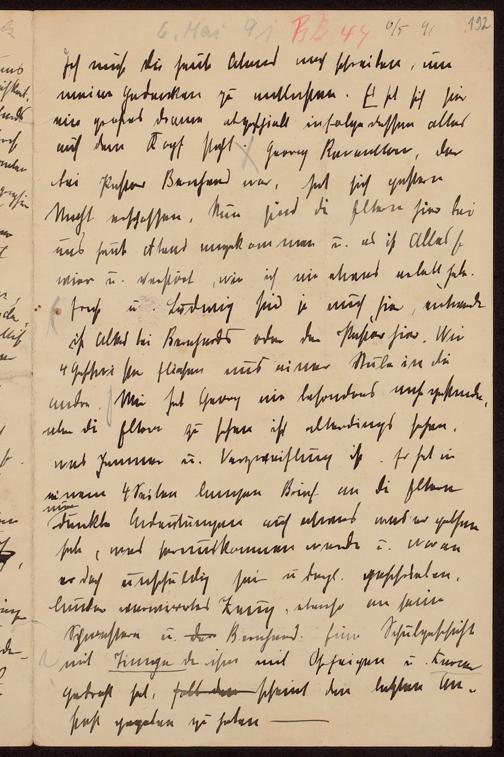 6. Mai 91 Bl 44 6/5 91 192
Ich muß Dir heute Abend noch schreiben, um
meine Gedanken zu entlasten. Es hat sich hier
ein großes Drama abgespielt infolgedessen alles
auf dem Kopf steht. Georg, der
bei Pastor Bernhard war, hat sich gestern
Nacht erschossen. Nun sind die Eltern hier bei
uns heut Abend angekommen u. es ist Alles so
wirr u. verstört, wie ich nie etwas erlebt habe.
Frech u. Ludwig sind ja auch hier, entweder
ist Alles bei Bernhards oder der Pastor hier. Wir
4 Geschwister fliehen aus einer Stube in die
andre. Mir hat Georg nie besonders nah gestanden,
aber die Eltern zu sehen ist allerdings
was Jammer u. Verzweiflung ist. Er hat in
einem 4 Seiten langen Brief an die Eltern
nur dunkle Andeutungen auf etwas was er gethan
habe, was herauskommen werde u. woran
er doch unschuldig sei u. dergl. geschrieben,
lauter verwirrtes Zeug, ebenso an seine
Schwestern u. Bernhard. Eine Schulgeschichte
mit der ihm mit Ohrfeigen u.
gedroht hat, scheint den letzten An-
stoß gegeben zu haben —